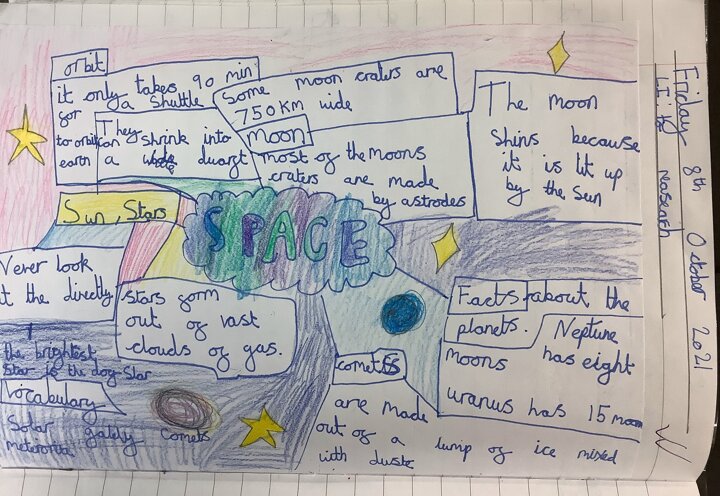 orbit
it only takes 90 min
for a Shuttle
to orbit
earth
They
can shrink into
a duarf
Some moon craters are
750Km wide
Moon
most of the moons
craters are made
by astrodes
The moon
Shins because
it is lit up
by the Sun
Sun, Stars
SPACE
Never look
at the directly
the brightest
Star is the dog Star
Stars form
out of vast
clouds of gas.
Vocabulary
Solar
meteorite
Comets
Facts about the
planets.
Neptune
moons has eight
uranus has 15 moon
comets
are made
out of a lump of ice mixed
with
Friday 8th October 2021
L.I: to
reasearch